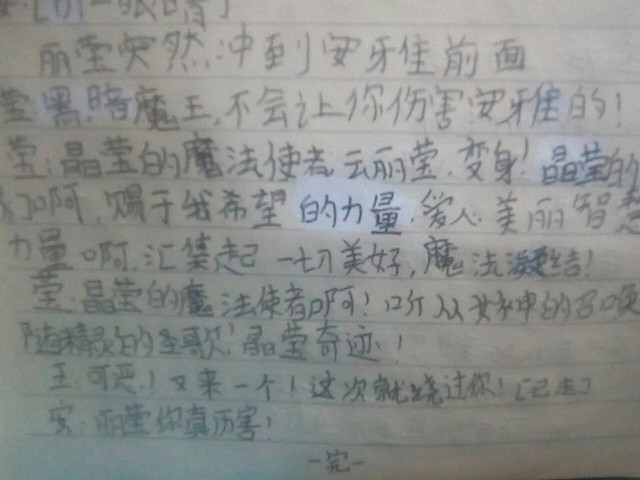 眼睛]
丽莹突然冲到安雅佳前面
莹:黑暗魔王,不会让你伤害安雅佳的!
莹:晶莹的魔法使者云丽莹.变身!晶莹的
啊 赐于我希望的力量.爱人.美丽智慧
力量啊.汇集起一切美好,魔法凝结!
莹:晶莹的魔法使者啊!听从女神的召唤
随精灵的圣歌!晶莹奇迹!
王:可恶!又来一个!这次就饶过你![已走]
安:丽莹你真历害!
-完-